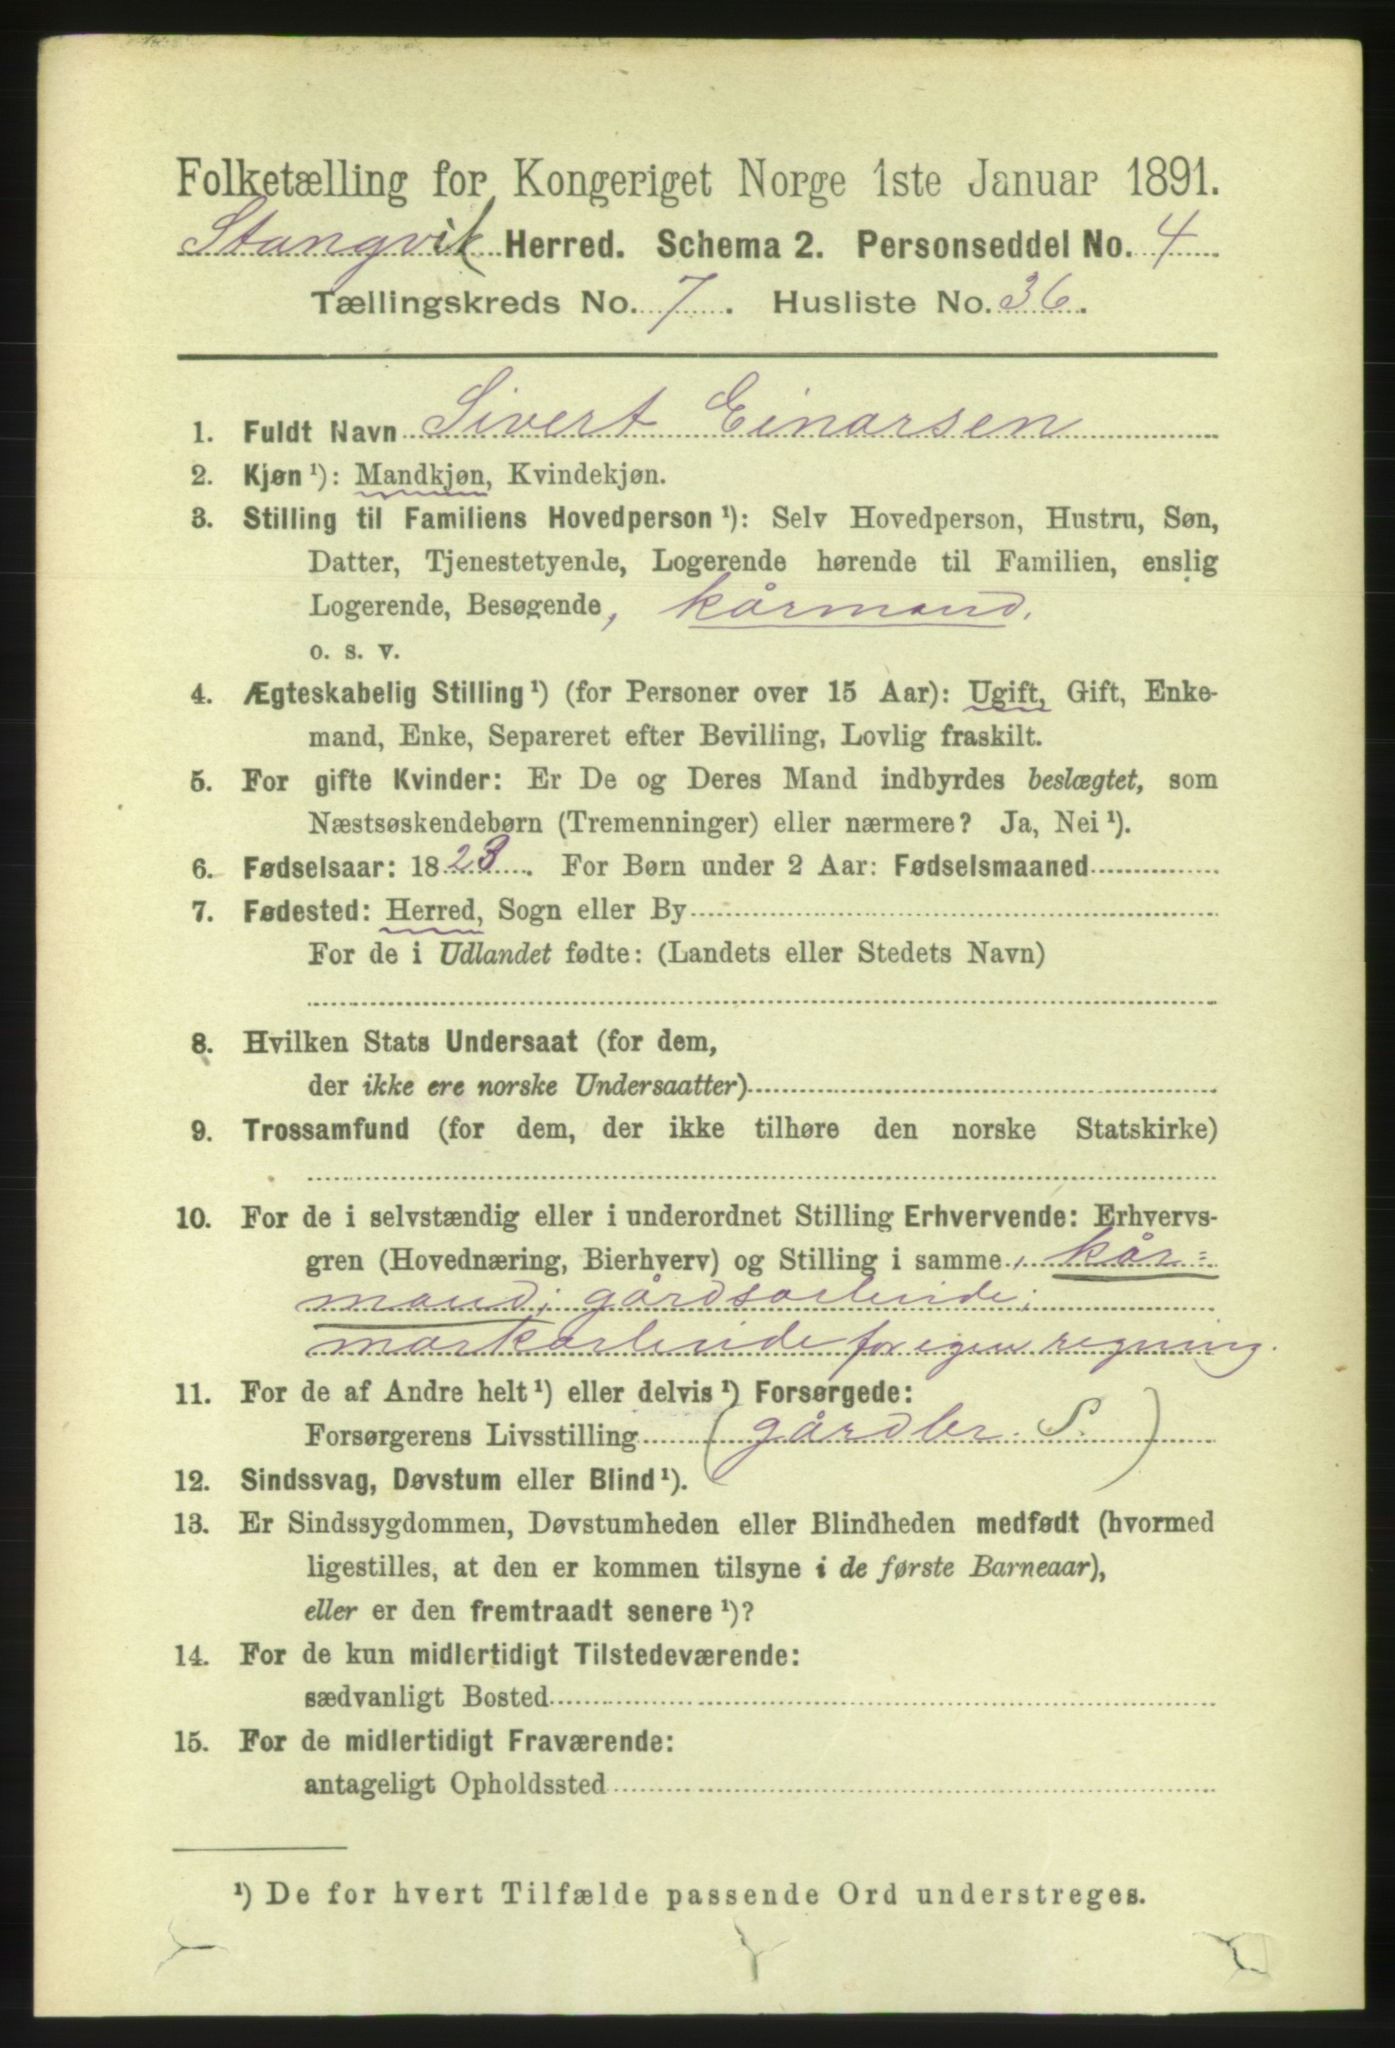 Folketælling for Kongeriget Norge 1ste Januar 1891.
Stangvik Herred. Schema 2. Personseddel No. 4
Tællingskreds No. 7. Husliste No. 36.
1. Fuldt Navn Sivert Einarsen
2. Kjøn ¹): Mandkjøn, Kvindekjøn.
3. Stilling til Familiens Hovedperson ¹): Selv Hovedperson, Hustru, Søn,
Datter, Tjenestetyende, Logerende hørende til Familien, enslig
Logerende, Besøgende, kårmand.
o. s. v.
4. Ægteskabelig Stilling ¹) (for Personer over 15 Aar): Ugift, Gift, Enke-
mand, Enke, Separeret efter Bevilling, Lovlig fraskilt.
5. For gifte Kvinder: Er De og Deres Mand indbyrdes beslægtet, som
Næstsøskendebørn (Tremenninger) eller nærmere? Ja, Nei ¹).
6. Fødselsaar: 1823. For Børn under 2 Aar: Fødselsmaaned
7. Fødested: Herred, Sogn eller By
For de i Udlandet fødte: (Landets eller Stedets Navn)
8. Hvilken Stats Undersaat (for dem,
der ikke ere norske Undersaatter)
9. Trossamfund (for dem, der ikke tilhøre den norske Statskirke)
10. For de i selvstændig eller i underordnet Stilling Erhvervende: Erhvervs-
gren (Hovednæring, Bierhverv) og Stilling i samme, kår=
mand; gårdsarbeide;
markarbeide for egen regning.
11. For de af Andre helt ¹) eller delvis ¹) Forsørgede:
Forsørgerens Livsstilling (gårdbr. S.)
12. Sindssvag, Døvstum eller Blind ¹).
13. Er Sindssygdommen, Døvstumheden eller Blindheden medfødt (hvormed
ligestilles, at den er kommen tilsyne i de første Barneaar),
eller er den fremtraadt senere ¹)?
14. For de kun midlertidigt Tilstedeværende:
sædvanligt Bosted
15. For de midlertidigt Fraværende:
antageligt Opholdssted
¹) De for hvert Tilfælde passende Ord understreges.